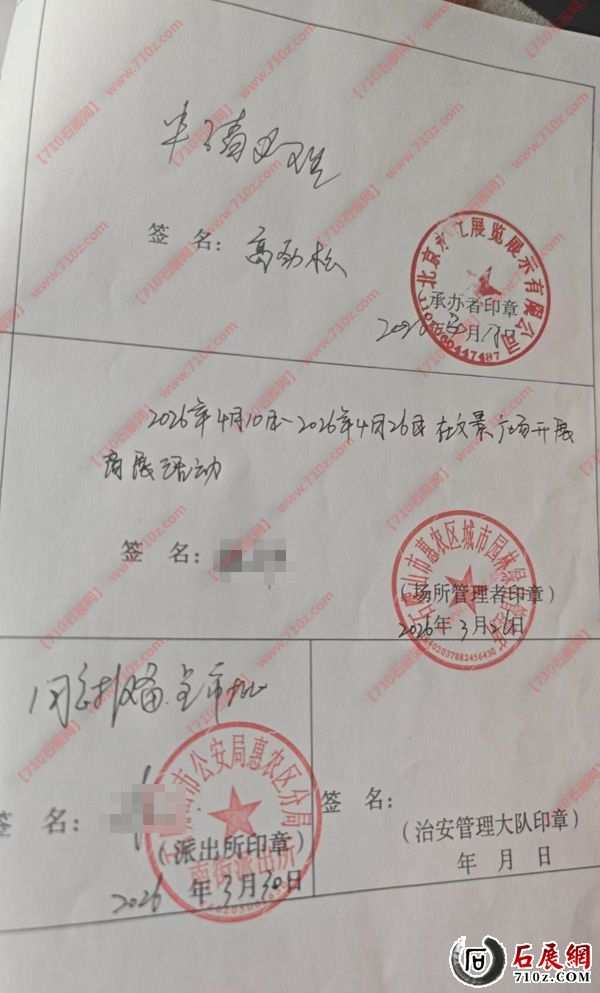 申请办理
签 名：高劲松
北京 展览展示有限公司
（承办者印章）
2026年3月 日
2026年4月10日~2026年4月26日 在文景广场开展
商展活动
签 名：
石嘴山市惠农区城市园林绿
（场所管理者印章）
2026年3月26日
6402037882456430
同意报备
签 名：
山市公安局惠农区分局
（派出所印章）
南街派出所
2026年3月30日
签 名：
（治安管理大队印章）
年 月 日
【710石展网】
www.710z.com
石展網
710z.com